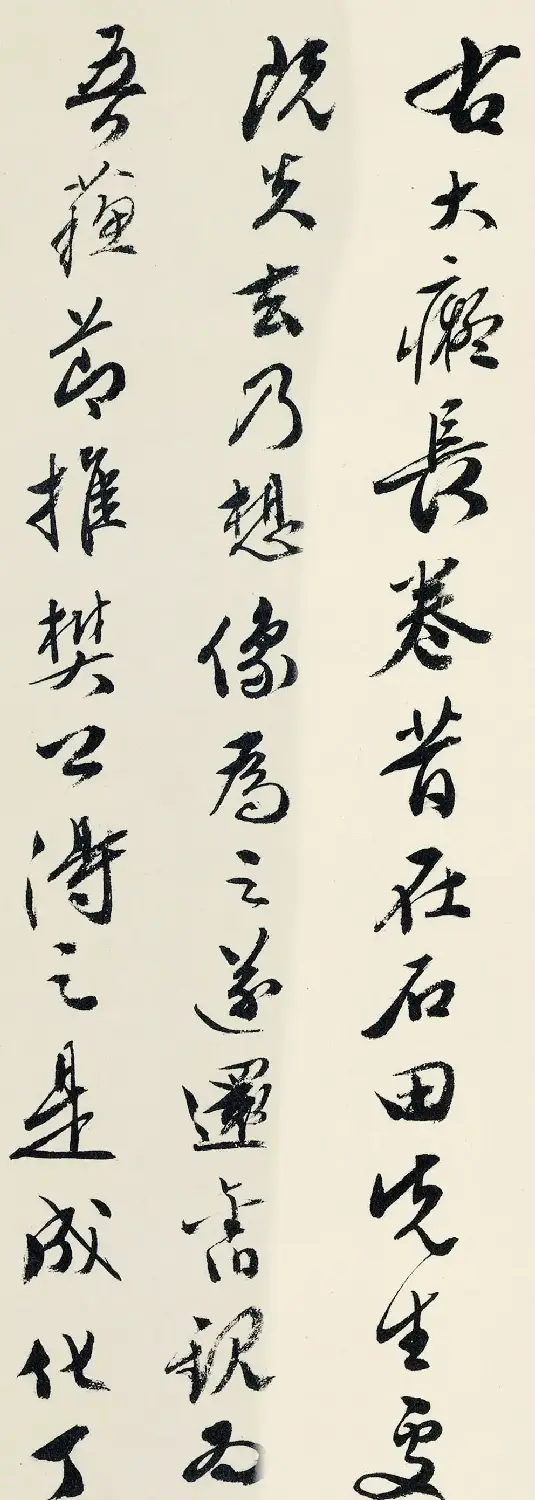 右大癡長卷昔在石田先生處
既失去乃想像為之遂還舊觀為
吾蘇節推樊公得之是成化丁